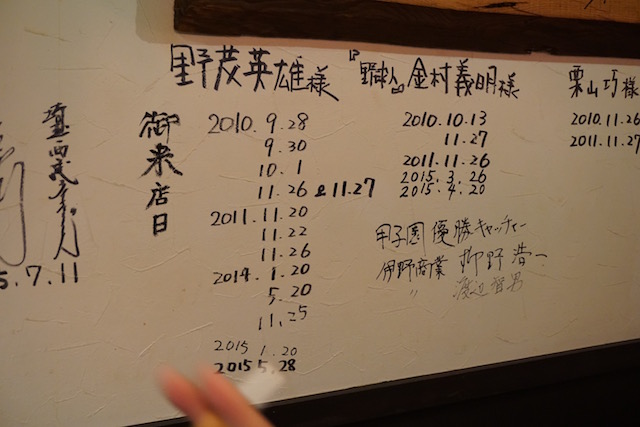 野茂英雄様
御来店日
2010.9.28
9.30
10.1
11.26 & 11.27
2011.11.20
11.22
11.26
2014.1.20
5.20
11.25
2015 1.20
2015 5.28
金村義明様
2010.10.13
11.27
2011.11.26
2015.3.26
2015.4.20
栗山巧様
2010.11.26
2011.11.27
甲子園優勝キャッチャー
伊野商業 柳野浩一
〃 渡辺智男
5.7.11